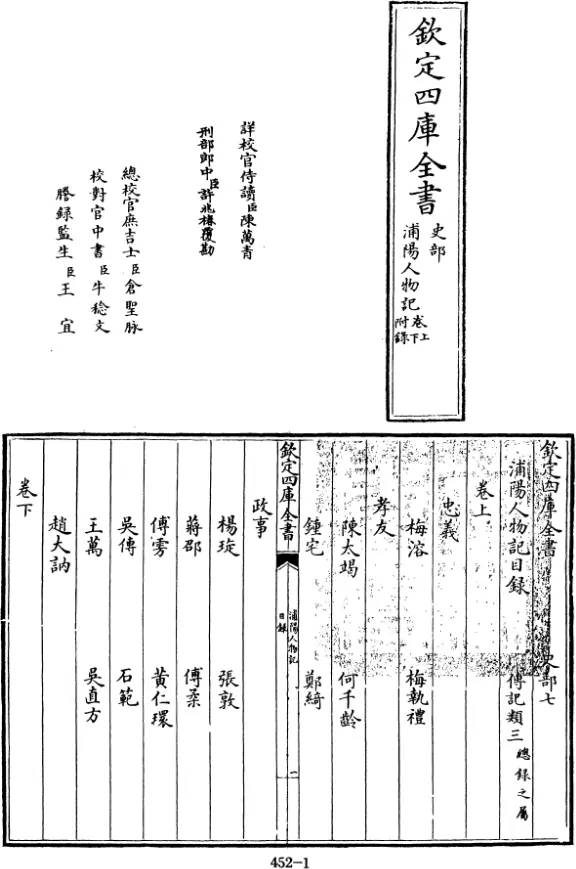 欽定四庫全書
史部
浦陽人物記
卷上
卷下
附錄
詳校官侍讀臣陳萬青
刑部郎中臣許兆椿覆勘
總校官庶吉士臣倉聖脉
校對官中書臣牛稔文
謄錄監生臣王宜
欽定四庫全書
史部七
浦陽人物記目錄
傳記類三總錄之屬
卷上
忠義
梅溶
梅執禮
孝友
陳太竭
何千齡
鍾宅
鄭綺
欽定四庫全書
浦陽人物記
目錄
一
政事
楊琁
張敦
蔣邵
傅柔
傅雱
黃仁環
吳傳
石範
王萬
吳直方
趙大訥
卷下
452-1